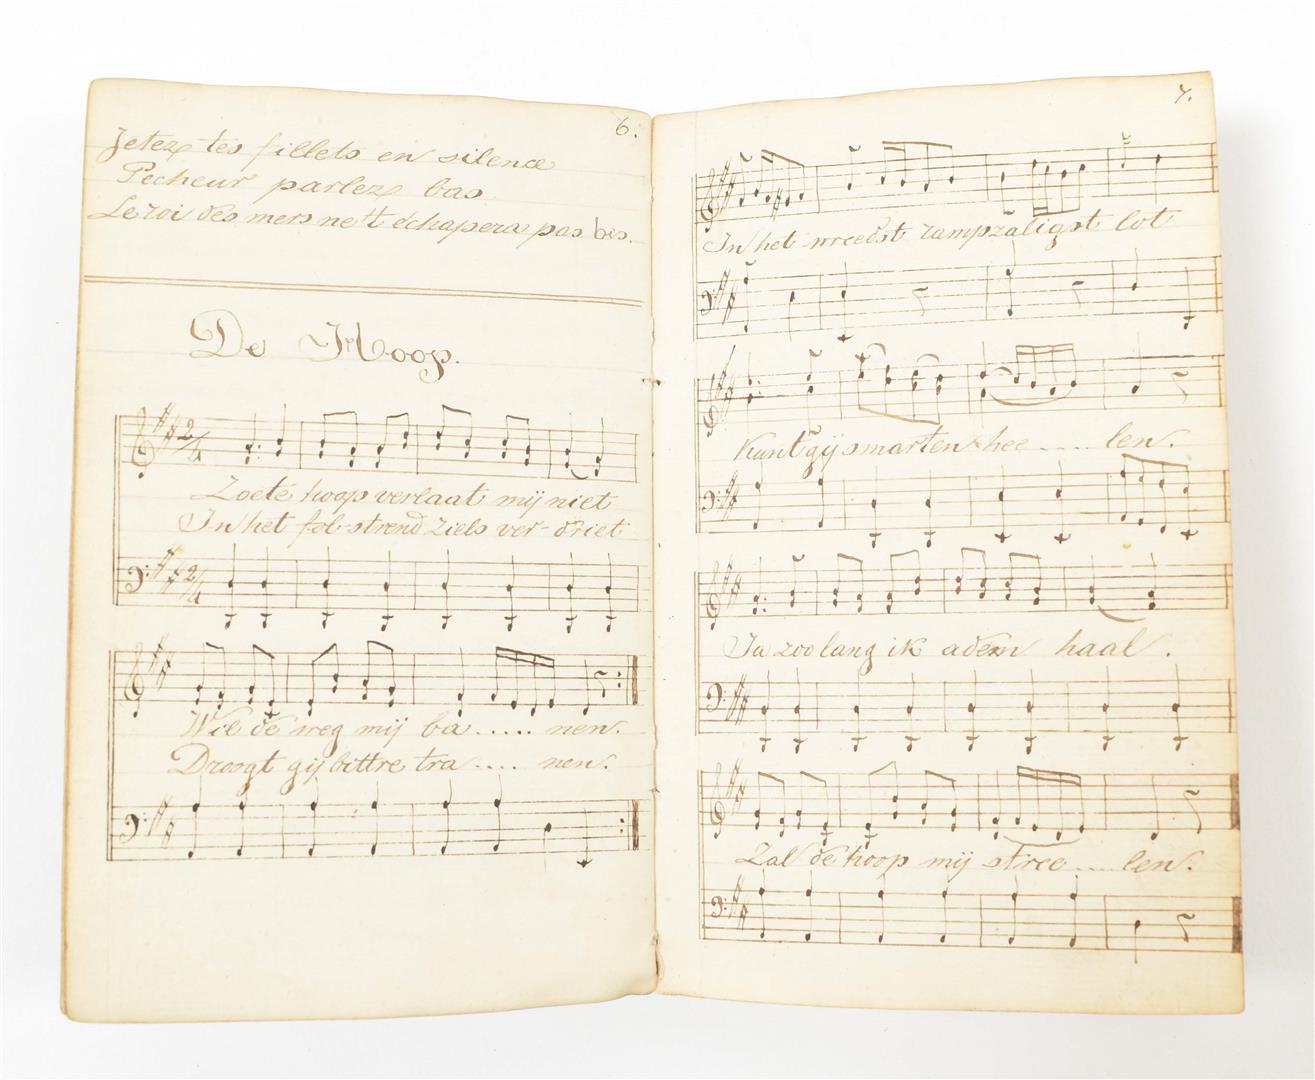 6.
Jetez tes fillets en silence
Pecheur parlez bas
Le roi des mers ne t'echapera pas bis.
De Hoop.
2/4
Zoete hoop verlaat mij niet
In het fol-strend ziels ver-driet
2/4
Wil de weg mij ba ..... nen.
Droogt gij bittre tra .... nen.
7.
In het wreedst rampzaligst lot
Kunt gij smarten hee ..... len.
Ja zoo lang ik adem haal.
Zal de hoop mij stree ..... len.